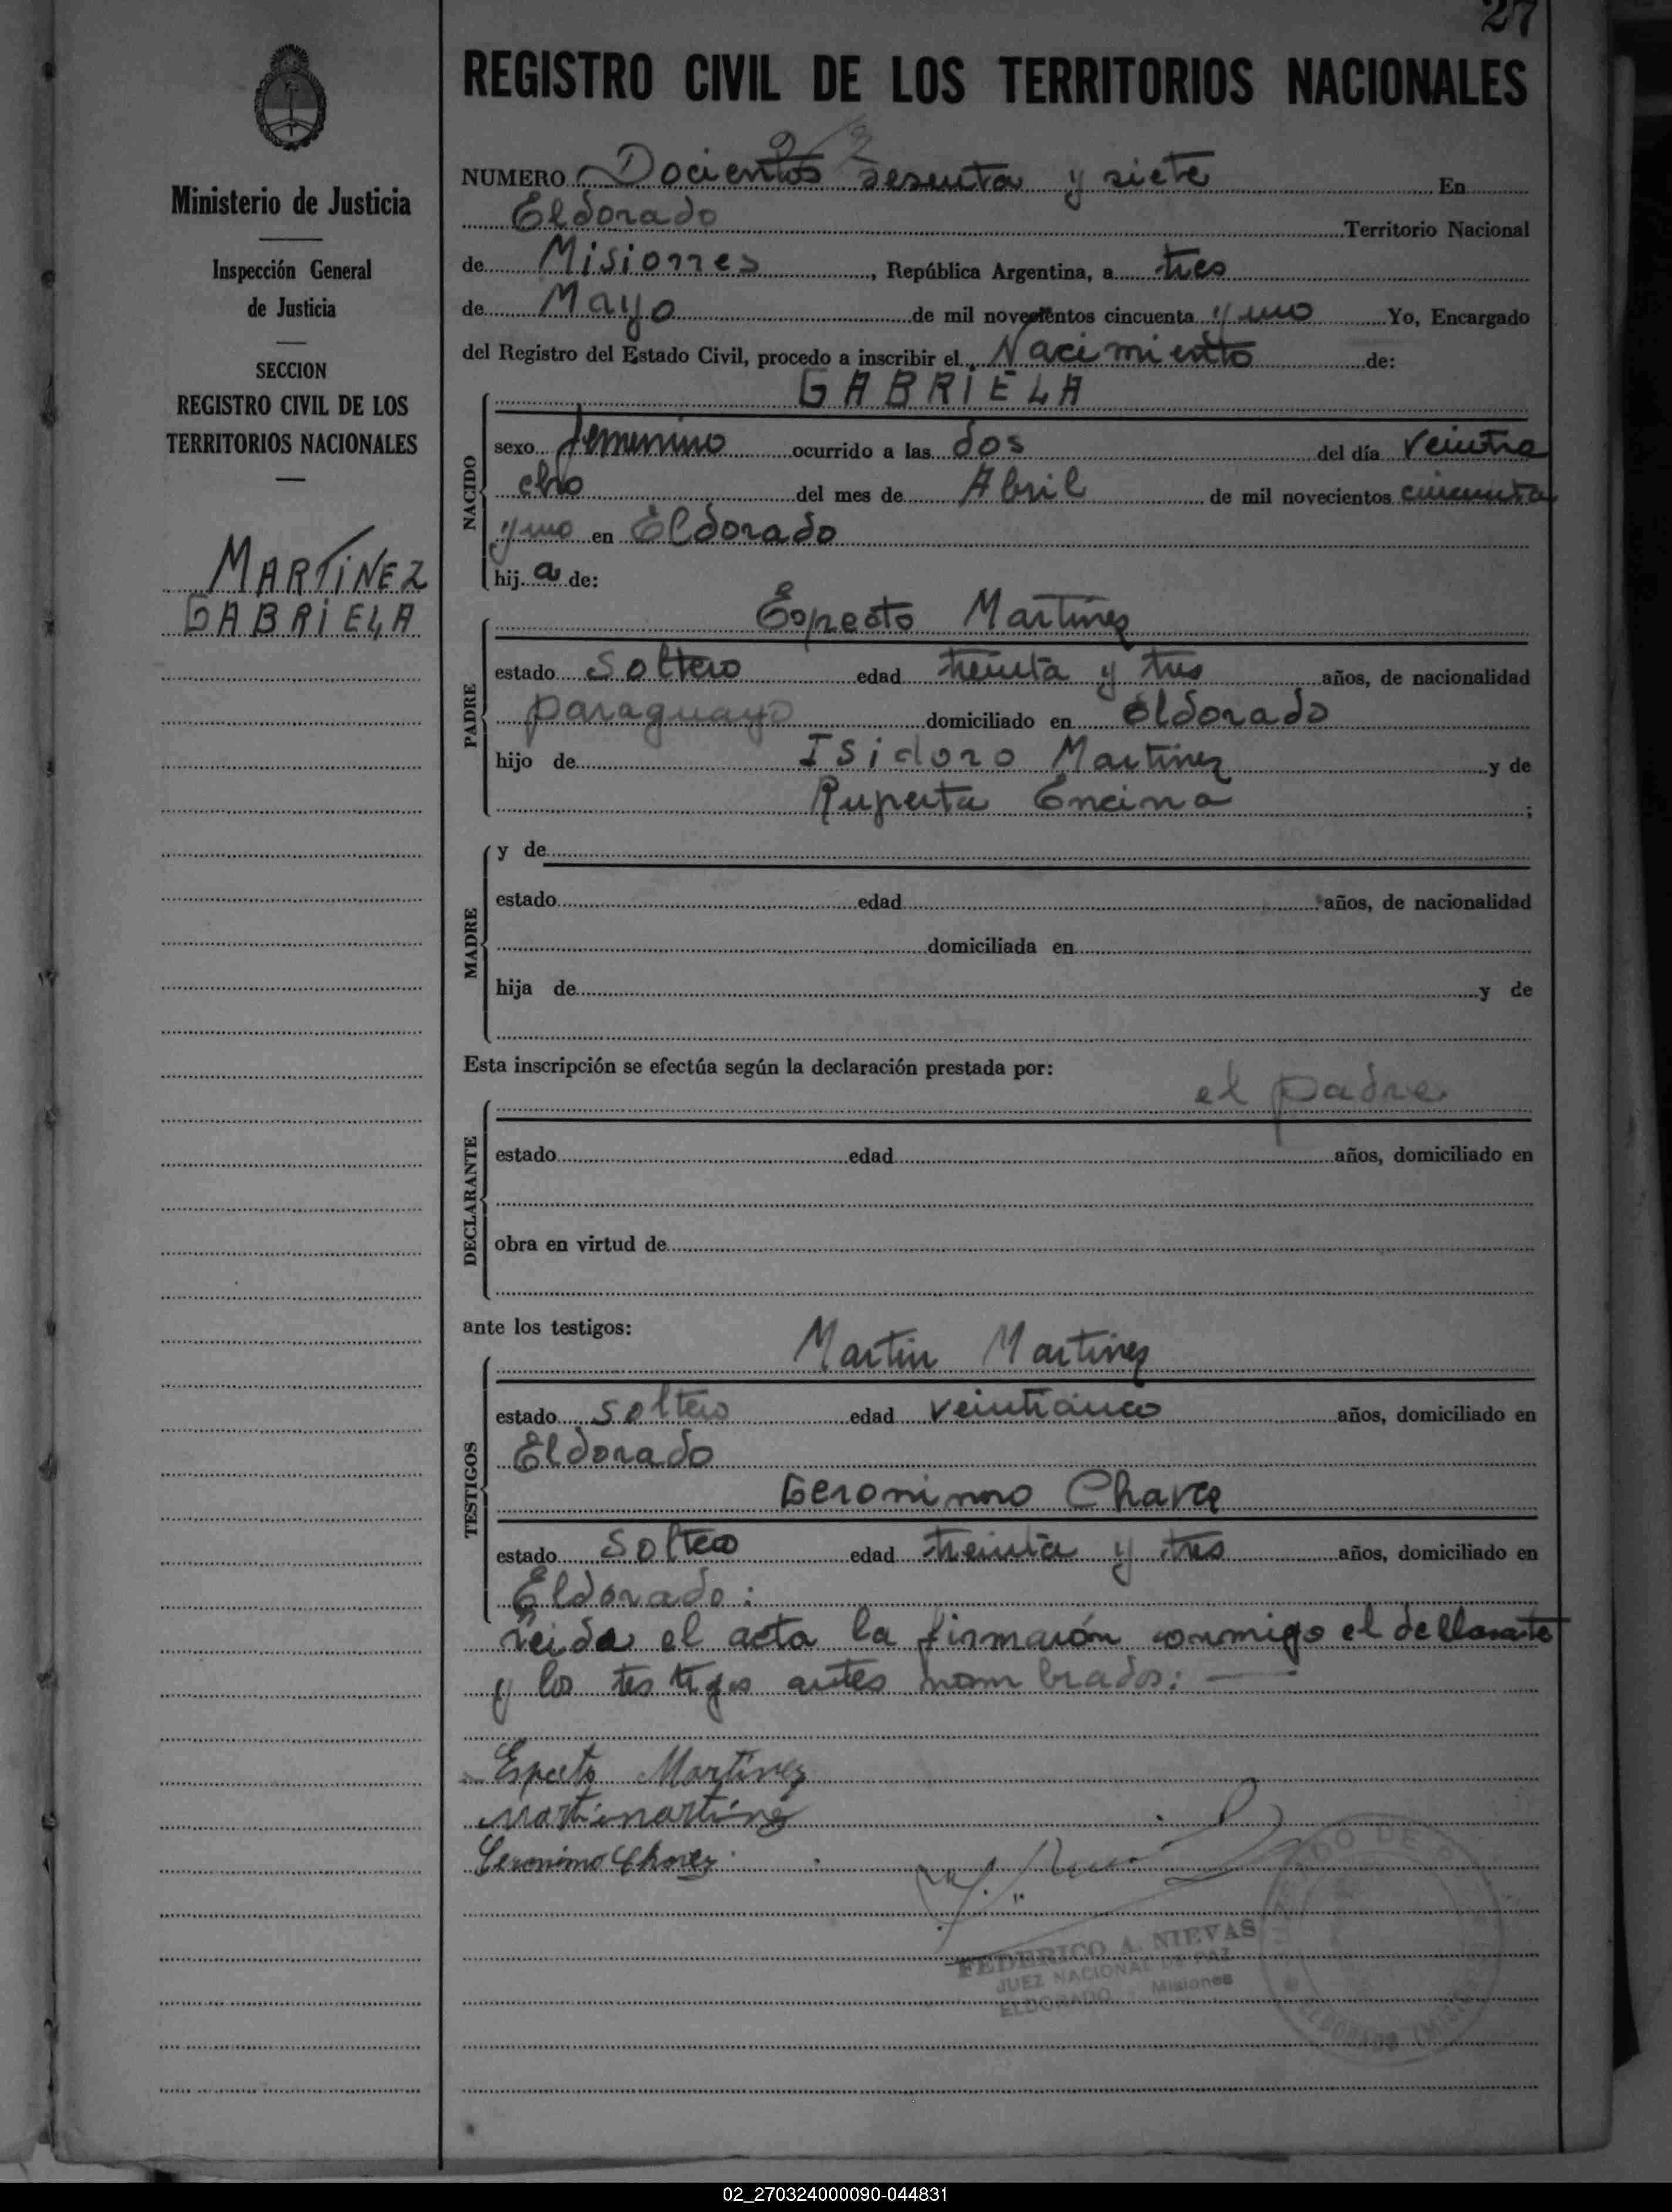 27
REGISTRO CIVIL DE LOS TERRITORIOS NACIONALES
Ministerio de Justicia
Inspección General
de Justicia
SECCION
REGISTRO CIVIL DE LOS
TERRITORIOS NACIONALES
MARTÍNEZ
GABRIELA
NUMERO Docientos sesenta y siete En
Eldorado Territorio Nacional
de Misiones, República Argentina, a tres
de Mayo de mil novecientos cincuenta y uno Yo, Encargado
del Registro del Estado Civil, procedo a inscribir el Nacimiento de:
NACIDO
GABRIELA
sexo femenino ocurrido a las dos del día veintio
cho del mes de Abril de mil novecientos cincuenta
y uno en Eldorado
hij a de:
PADRE
Martinez
estado Soltero edad treinta y tres años, de nacionalidad
paraguayo domiciliado en Eldorado
hijo de Isidoro Martinez y de
Ruperta Encina ;
MADRE
y de
estado edad años, de nacionalidad
domiciliada en
hija de y de
Esta inscripción se efectúa según la declaración prestada por:
DECLARANTE
el padre
estado edad años, domiciliado en
obra en virtud de
ante los testigos:
TESTIGOS
Martin Martinez
estado soltero edad veinticinco años, domiciliado en
Eldorado
Geronimo Chavez
estado Soltero edad treinta y tres años, domiciliado en
Eldorado:
leida el acta la firmarón conmigo el dellarante
y los testigos antes nombrados: —
Martínez
Geronimo Chavez
FEDERICO A. NIEVAS
JUEZ NACIONAL DE PAZ
ELDORADO Misiones
02_270324000090-044831